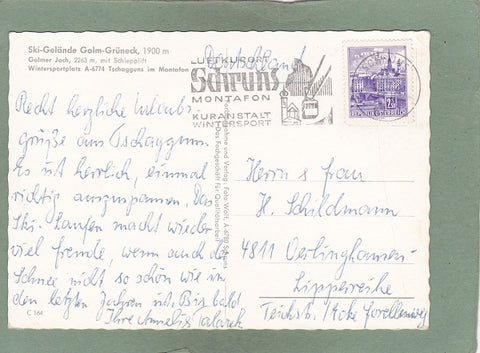 Ski-Gelände Golm-Grüneck, 1900 m
Golmer Joch, 2263 m, mit Schlepplift
Wintersportplatz A-6774 Tschagguns im Montafon
Deutschland
LUFTKURORT
Schruns
MONTAFON
KURANSTALT
WINTERSPORT
2.-
REPUBLIK ÖSTERREICH
Recht herzliche Urlaubs-
grüße aus Tschaggun.
Es ist herrlich, einmal
richtig auszuspannen. Das
Ski-Laufen macht wieder
viel Freude, wenn auch der
Schnee nicht so schön wie in
den letzten Jahren ist. Bis bald
Ihre Annelis
Aufnahme und Verlag: Foto Wolf, A-6780 Schruns
Das Fachgeschäft für Qualitätsarbeit
Herrn u Frau
H. Schildmann
4811 Oerlinghausen-
Lipperreihe
Teichstr. / Ecke Forellenweg
C 164